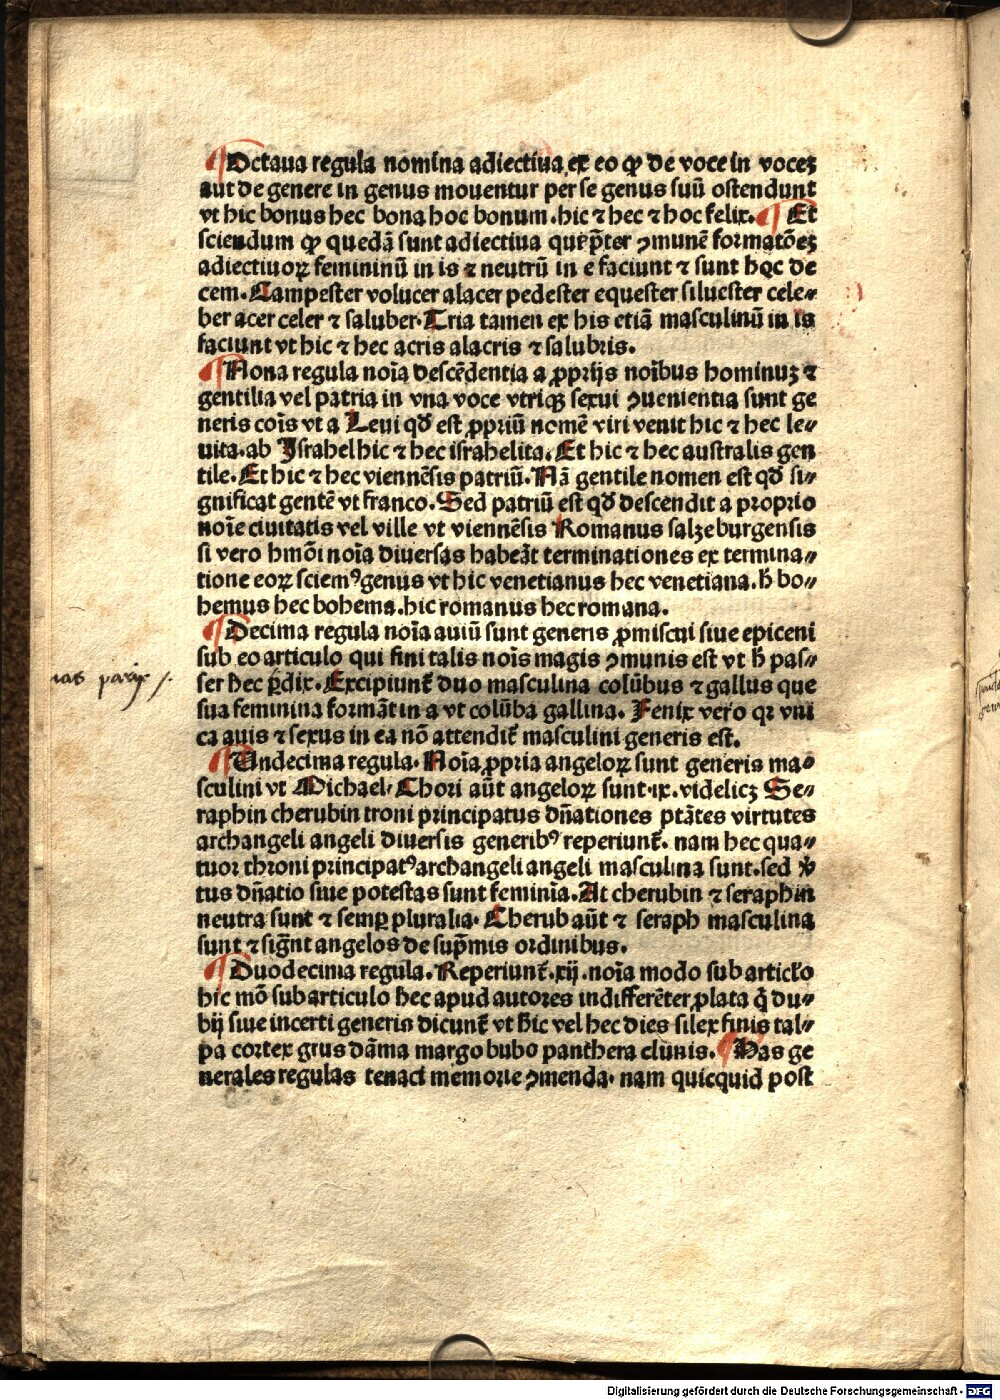 ¶ Octaua regula nomina adiectiua ex eo ꝙ de voce in voceꝫ
aut de genere in genus mouentur per se genus suū ostendunt
vt hic bonus hec bona hoc bonum. hic ⁊ hec ⁊ hoc felix. ¶ Et
sciendum ꝙ quedā sunt adiectiua que p̄ter ꝯmunē formatōeꝫ
adiectiuoꝝ femininū in is ⁊ neutrū in e faciunt ⁊ sunt hęc de
cem. Campester volucer alacer pedester equester siluester cele⸗
ber acer celer ⁊ saluber. Tria tamen ex his etiā masculinū in is
faciunt vt hic ⁊ hec acris alacris ⁊ salubris.
¶ Nona regula noīa descēdentia a ꝓprijs noībus hominuꝫ ⁊
gentilia vel patria in vna voce vtriqꝫ sexui ꝯuenientia sunt ge
neris cois̄ vt a Leui qđ est ꝓpriū nomē viri venit hic ⁊ hec le⸗
uita. ab Israhel hic ⁊ hec israhelita. Et hic ⁊ hec australis gen
tile. Et hic ⁊ hec viennēsis patriū. Nā gentile nomen est qđ si⸗
gnificat gentē vt franco. Sed patriū est qđ descendit a proprio
noīe ciuitatis vel ville vt viennēsis Romanus salzeburgensis
si vero hmōi noīa diuersas habeāt terminationes ex termina⸗
tione eoꝝ sciemꝰ genus vt hic venetianus hec venetiana. h̄ bo⸗
hemus hec bohema. hic romanus hec romana.
¶ Decima regula noīa auiū sunt generis ꝓmiscui siue epiceni
sub eo articulo qui fini talis nois̄ magis ꝯmunis est vt h̄ pas⸗
ser hec p̄dix. Excipiunt̄ duo masculina colūbus ⁊ gallus que
sua feminina formāt in a vt colūba gallina. Fenix vero qꝛ vni
ca auis ⁊ sexus in ea nō attendit̄ masculini generis est.
¶ Undecima regula. Noīa ꝓpria angeloꝝ sunt generis ma⸗
sculini vt Michael. Chori aūt angeloꝝ sunt .ix. videlicꝫ Se⸗
raphin cherubin troni principatus dn̄ationes ptātes virtutes
archangeli angeli diuersis generibꝰ reperiunt̄. nam hec qua⸗
tuor throni principatꝰ archangeli angeli masculina sunt. sed v̄
tus dn̄atio siue potestas sunt feminīa. At cherubin ⁊ seraphin
neutra sunt ⁊ semꝑ pluralia. Cherub aūt ⁊ seraph masculina
sunt ⁊ sign̄t angelos de sup̄mis ordinibus.
¶ Duodecima regula. Reperiunt̄ .xij. noīa modo sub articlo
hic mō sub articulo hec apud autores indifferēter ꝓlata q̄ du⸗
bij siue incerti generis dicunt̄ vt hic vel hec dies silex finis tal⸗
pa cortex grus dāma margo bubo panthera clunis. ¶ Has ge
nerales regulas tenaci memorie ꝯmenda. nam quicquid post